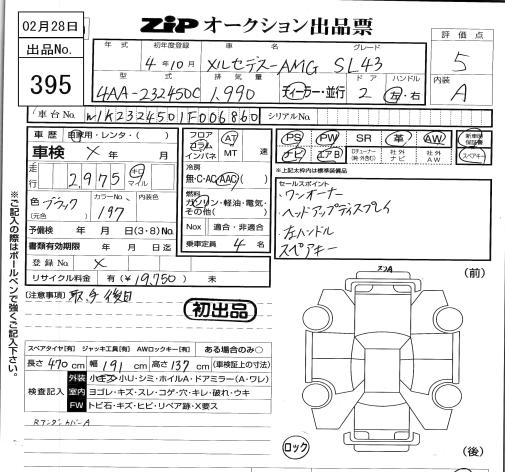 02月28日
出品No.
395
ZIP オークション出品票
評価点
5
内装
A
年式 初年度登録 車名 グレード
4年10月 メルセデス-AMG SL43
型式 排気量 ドア ハンドル
4AA-232450C 1,990 ディーラー・並行 2 左・右
車台No. W1K2324501F006860 シリアルNo.
車歴 自家用・レンタ・( )
車検 × 年 月
走行 2,975 キロ マイル
色 ブラック カラーNo. 197 内装色
(元色)
予備検 年 月 日(3・8)No.
書類有効期限 年 月 日迄
登録No. ×
リサイクル料金 有(¥19,750) 未
フロア コラム インパネ AT MT 速
冷房 無・C・AC(AAC)
燃料 ガソリン・軽油・電気・その他( )
Nox 適合・非適合
乗車定員 4 名
PS PW SR 革 AW 新車時保証書
ナビ エアB 社外ナビ 社外AW スペアキー
※上記太枠内は標準装備品
セールスポイント
・ワンオーナー
・ヘッドアップディスプレイ
・左ハンドル
・スペアキー
[注意事項] 取、予後日
初出品
※ご記入の際はボールペンで強くご記入下さい。
スペアタイヤ[有] ジャッキ工具[有] AWロックキー[有] ある場合のみ○
長さ 470 cm 幅 191 cm 高さ 137 cm (車検証上の寸法)
検査記入
外装 小キズ・小U・シミ・ホイルA・ドアミラー(A・ワレ)
室内 ヨゴレ・キズ・スレ・コゲ・穴・キレ・破れ・ウキ
FW トビ石・キズ・ヒビ・リペア跡・X要ス
RアンダーカバーA
(前)
ロック
(後)